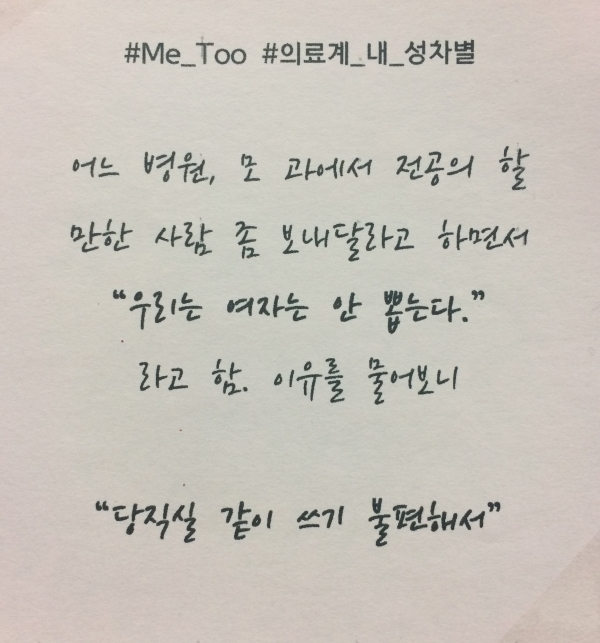 #Me_Too #의료계_내_성차별
어느 병원, 모 과에서 전공의 할
만한 사람 좀 보내달라고 하면서
“우리는 여자는 안 뽑는다.”
라고 함. 이유를 물어보니
“당직실 같이 쓰기 불편해서”